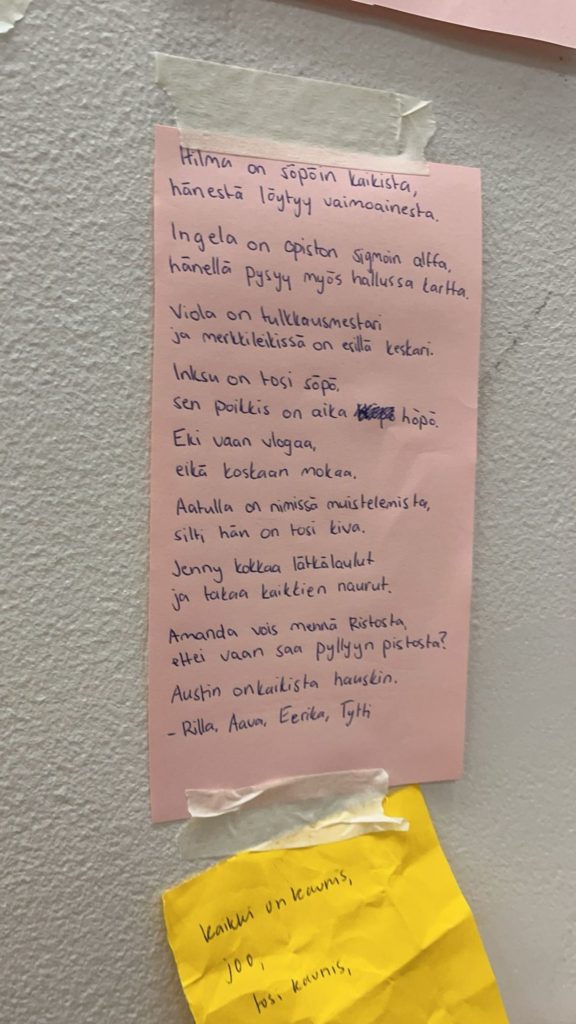 Hilma on söpöin kaikista,
hänestä löytyy vaimoainesta.
Ingela on opiston sigmoin alffa,
hänellä pysyy myös hallussa kartta.
Viola on tulkkausmestari
ja merkkileikissä on esillä keskari.
Inksu on tosi söpö,
sen poikkis on aika höpö.
Eki vaan vlogaa,
eikä koskaan mokaa.
Aatulla on nimissä muistelemista,
silti hän on tosi kiva.
Jenny kokkaa lätkälaulut
ja takaa kaikkien naurut.
Amanda vois mennä Ristosta,
ettei vaan saa pyllyyn pistosta?
Austin onkaikista hauskin.
- Rilla, Aava, Eerika, Tytti
kaikki on kaunis,
joo,
tosi kaunis,